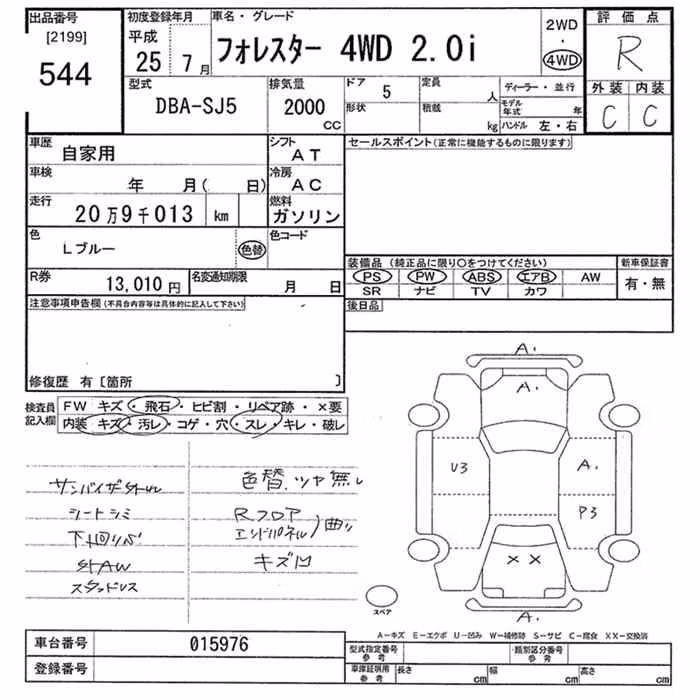 出品番号
[2199]
544
初度登録年月
平成
25 7 月
車名・グレード
フォレスター 4WD 2.0i
2WD
・
4WD
評価点
R
外装 内装
C C
型式
DBA-SJ5
排気量
2000
CC
ドア 5
形状
定員 人
積載 kg
ディーラー・並行
モデル年式 年
ハンドル 左・右
車歴
自家用
シフト
AT
車検
年 月( 日)
冷房
AC
走行
20万9千013 km
燃料
ガソリン
色
Lブルー
色替
色コード
R券
13,010円
名変通知期限
月 日
セールスポイント(正常に機能するものに限ります)
装備品(純正品に限り○をつけてください)
PS PW ABS エアB AW
SR ナビ TV カワ
新車保証書
有・無
後日品
注意事項申告欄(不具合内容等は具体的に記入して下さい)
修復歴 有〔箇所 〕
検査員記入欄
FW キズ・飛石・ヒビ割・リペア跡・×要
内装 キズ・汚レ・コゲ・穴・スレ・キレ・破レ
サンバイザ
シートシミ
下回りサビ
SAW
スタッドレス
色替.ツヤ無し
Rフロア
エンドパネル)曲り
キズ凹
A.
A.
U3
A.
P3
××
A.
スペア
A-キズ E-エクボ U-凹み W-補修跡 S-サビ C-腐食 XX-交換済
車台番号
015976
登録番号
型式指定番号
参考
類別区分番号
参考
車庫証明用
参考
長さ cm 幅 cm 高さ cm